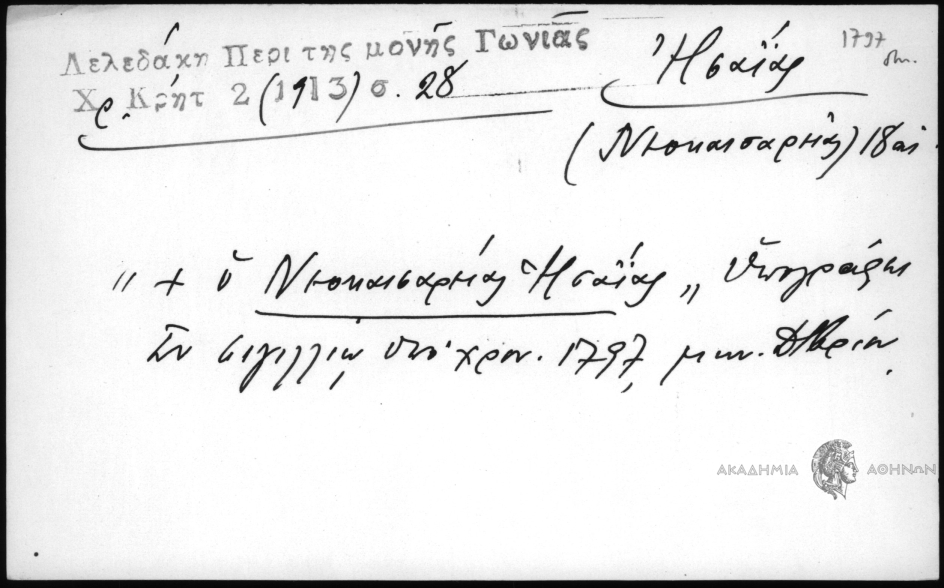 Λελεδάκη Περι της μονῆς Γωνιᾶς
Χρ. Κρήτ 2 (1913) σ. 28
Ἡσαΐας
1797
(Νεοκαισαρείας) 18 αἰ.
" + ὁ Νεοκαισαρείας Ἡσαΐας " ὑπογράφει
ἐν σιγιλλίῳ ὑπὸ χρον. 1797, μην.
ΑΚΑΔΗΜΙΑ ΑΘΗΝΩΝ